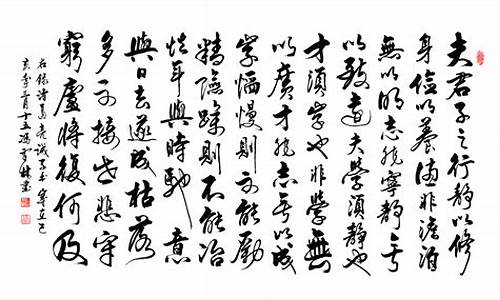 夫君子之行静以修
身儉以養德非澹泊
無以明志非寧静无
以致遠夫學須静也
才須學也非學無
以廣才非志无以成
學慆慢則不能勵
精險躁則不能冶
性年與時馳意
與日去遂成枯落
多不接世悲守
窮廬將復何及
右錄諸葛亮誡子書歲在己
亥年二月十五馮